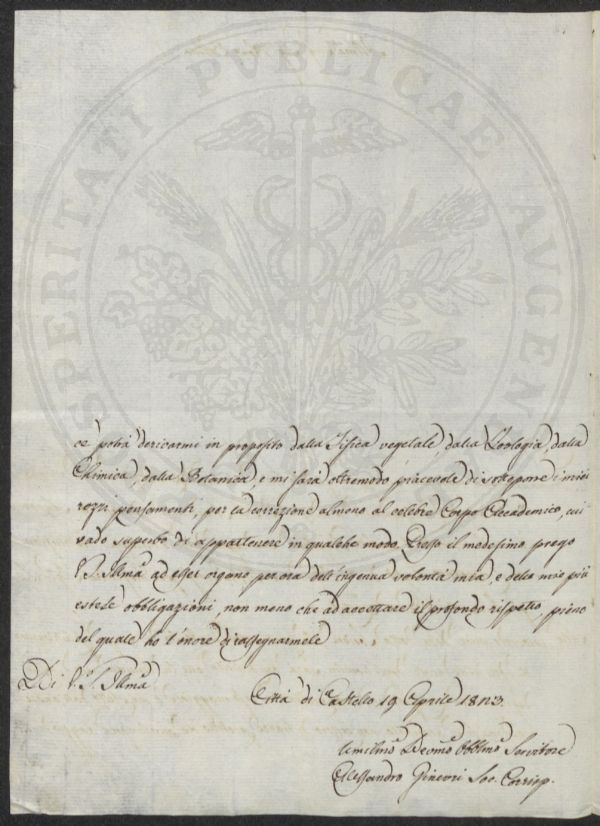 PROSPERITATI PVBLICAE AVGENDAE
ce potrà derivarmi in proposito dalla Fisica vegetale, dalla Zoologia, dalla
Chimica, dalla Botanica, e mi sarà oltremodo piacevole di sottoporre i miei
rozzi pensamenti, per la correzione almeno al celebre Corpo Accademico, cui
vado superbo di appartenere in qualche modo. Presso il medesimo prego
V. S. Illma ad esser organo per ora dell'ingenua volontà mia, e delle mie più
estese obbligazioni, non meno che ad accettare il profondo rispetto, pieno
del quale ho l'onore di rassegnarmele
Di V. S. Illma
Città di Castello 19 Aprile 1823.
Umilmo Devmo Obblmo Servitore
Alessandro Ginevri Soc. Corrisp.